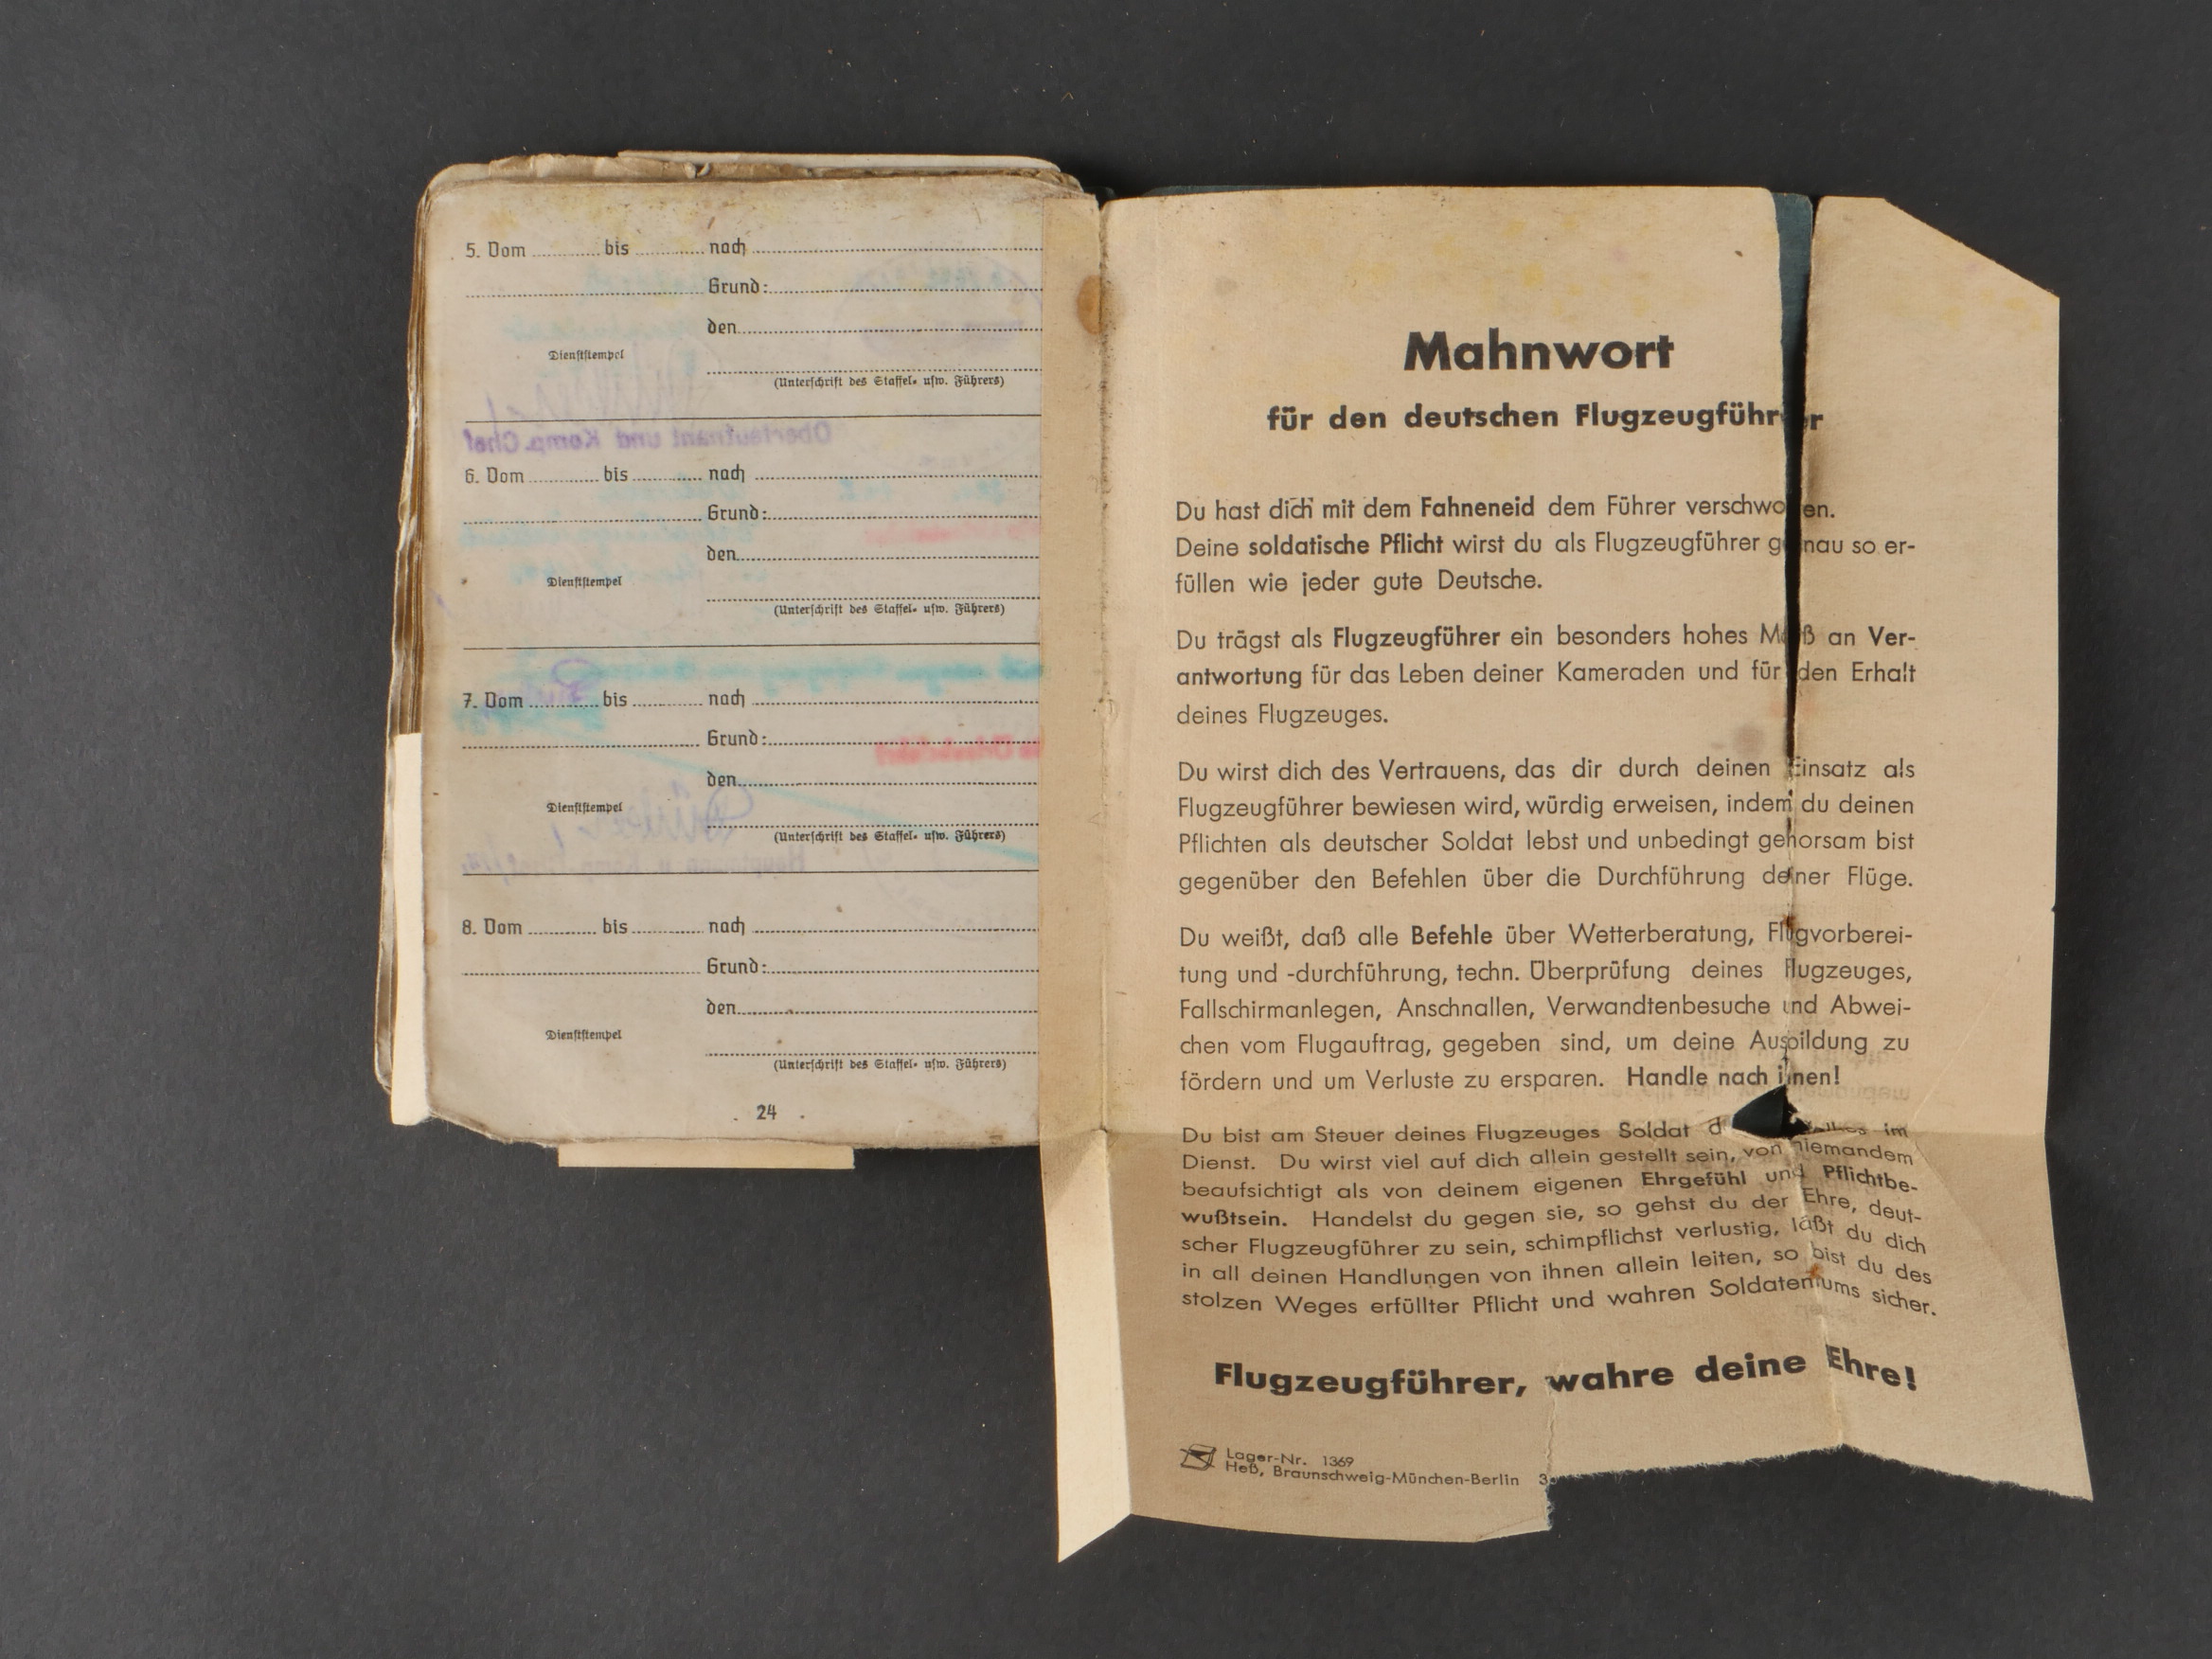 5. Vom bis nach
Grund:
den
Dienstſtempel
(Unterſchrift des Staffel- uſw. Führers)
Oberleutnant und Komp.Chef
6. Vom bis nach
Grund:
den
Dienstſtempel
(Unterſchrift des Staffel- uſw. Führers)
7. Vom bis nach
Grund:
den
Dienstſtempel
(Unterſchrift des Staffel- uſw. Führers)
8. Vom bis nach
Grund:
den
Dienstſtempel
(Unterſchrift des Staffel- uſw. Führers)
24
Mahnwort
für den deutschen Flugzeugführer
Du hast dich mit dem Fahneneid dem Führer verschworen.
Deine soldatische Pflicht wirst du als Flugzeugführer genau so er-
füllen wie jeder gute Deutsche.
Du trägst als Flugzeugführer ein besonders hohes Maß an Ver-
antwortung für das Leben deiner Kameraden und für den Erhalt
deines Flugzeuges.
Du wirst dich des Vertrauens, das dir durch deinen Einsatz als
Flugzeugführer bewiesen wird, würdig erweisen, indem du deinen
Pflichten als deutscher Soldat lebst und unbedingt gehorsam bist
gegenüber den Befehlen über die Durchführung deiner Flüge.
Du weißt, daß alle Befehle über Wetterberatung, Flugvorberei-
tung und -durchführung, techn. Überprüfung deines Flugzeuges,
Fallschirmanlegen, Anschnallen, Verwandtenbesuche und Abwei-
chen vom Flugauftrag, gegeben sind, um deine Ausbildung zu
fördern und um Verluste zu ersparen. Handle nach ihnen!
Du bist am Steuer deines Flugzeuges Soldat im
Dienst. Du wirst viel auf dich allein gestellt sein, von niemandem
beaufsichtigt als von deinem eigenen Ehrgefühl und Pflichtbe-
wußtsein. Handelst du gegen sie, so gehst du der Ehre, deut-
scher Flugzeugführer zu sein, schimpflichst verlustig, läßt du dich
in all deinen Handlungen von ihnen allein leiten, so bist du des
stolzen Weges erfüllter Pflicht und wahren Soldatentums sicher.
Flugzeugführer, wahre deine Ehre!
Lager-Nr. 1369
Heß, Braunschweig-München-Berlin 3